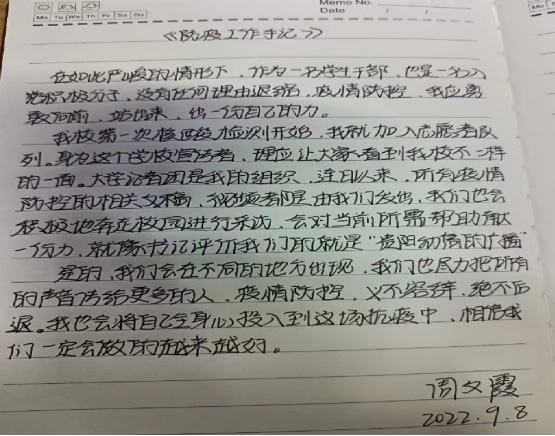 Memo No.
Mo Tu We Th Fr Sa Su
Date / /
《防疫工作手记》
在如此严峻的情形下，作为一名学生干部，也是一名入
党积极分子，没有任何理由退缩，疫情防控，我应勇
敢向前，站出来，出一份自己的力。
我校第一次核酸检测开始，我就加入志愿者队
列。身为这个学校宣传者，理应让大家看到我校不一样
的一面。大学记者团是我的组织，连日以来，所有疫情
防控的相关文稿、视频都是由我们发出，我们也会
积极地奔走校园进行采访，会对当前所需帮助献
一份力，就像书记评价我们的就是“贵阳动情的广播”
是的，我们会在不同的地方出现，我们也尽力把所有
的声音传给更多的人，疫情防控，义不容辞，绝不后
退。我也会将自己全身心投入到这场抗疫中，相信我
们一定会做的越来越好。
周文霞
2022.9.8